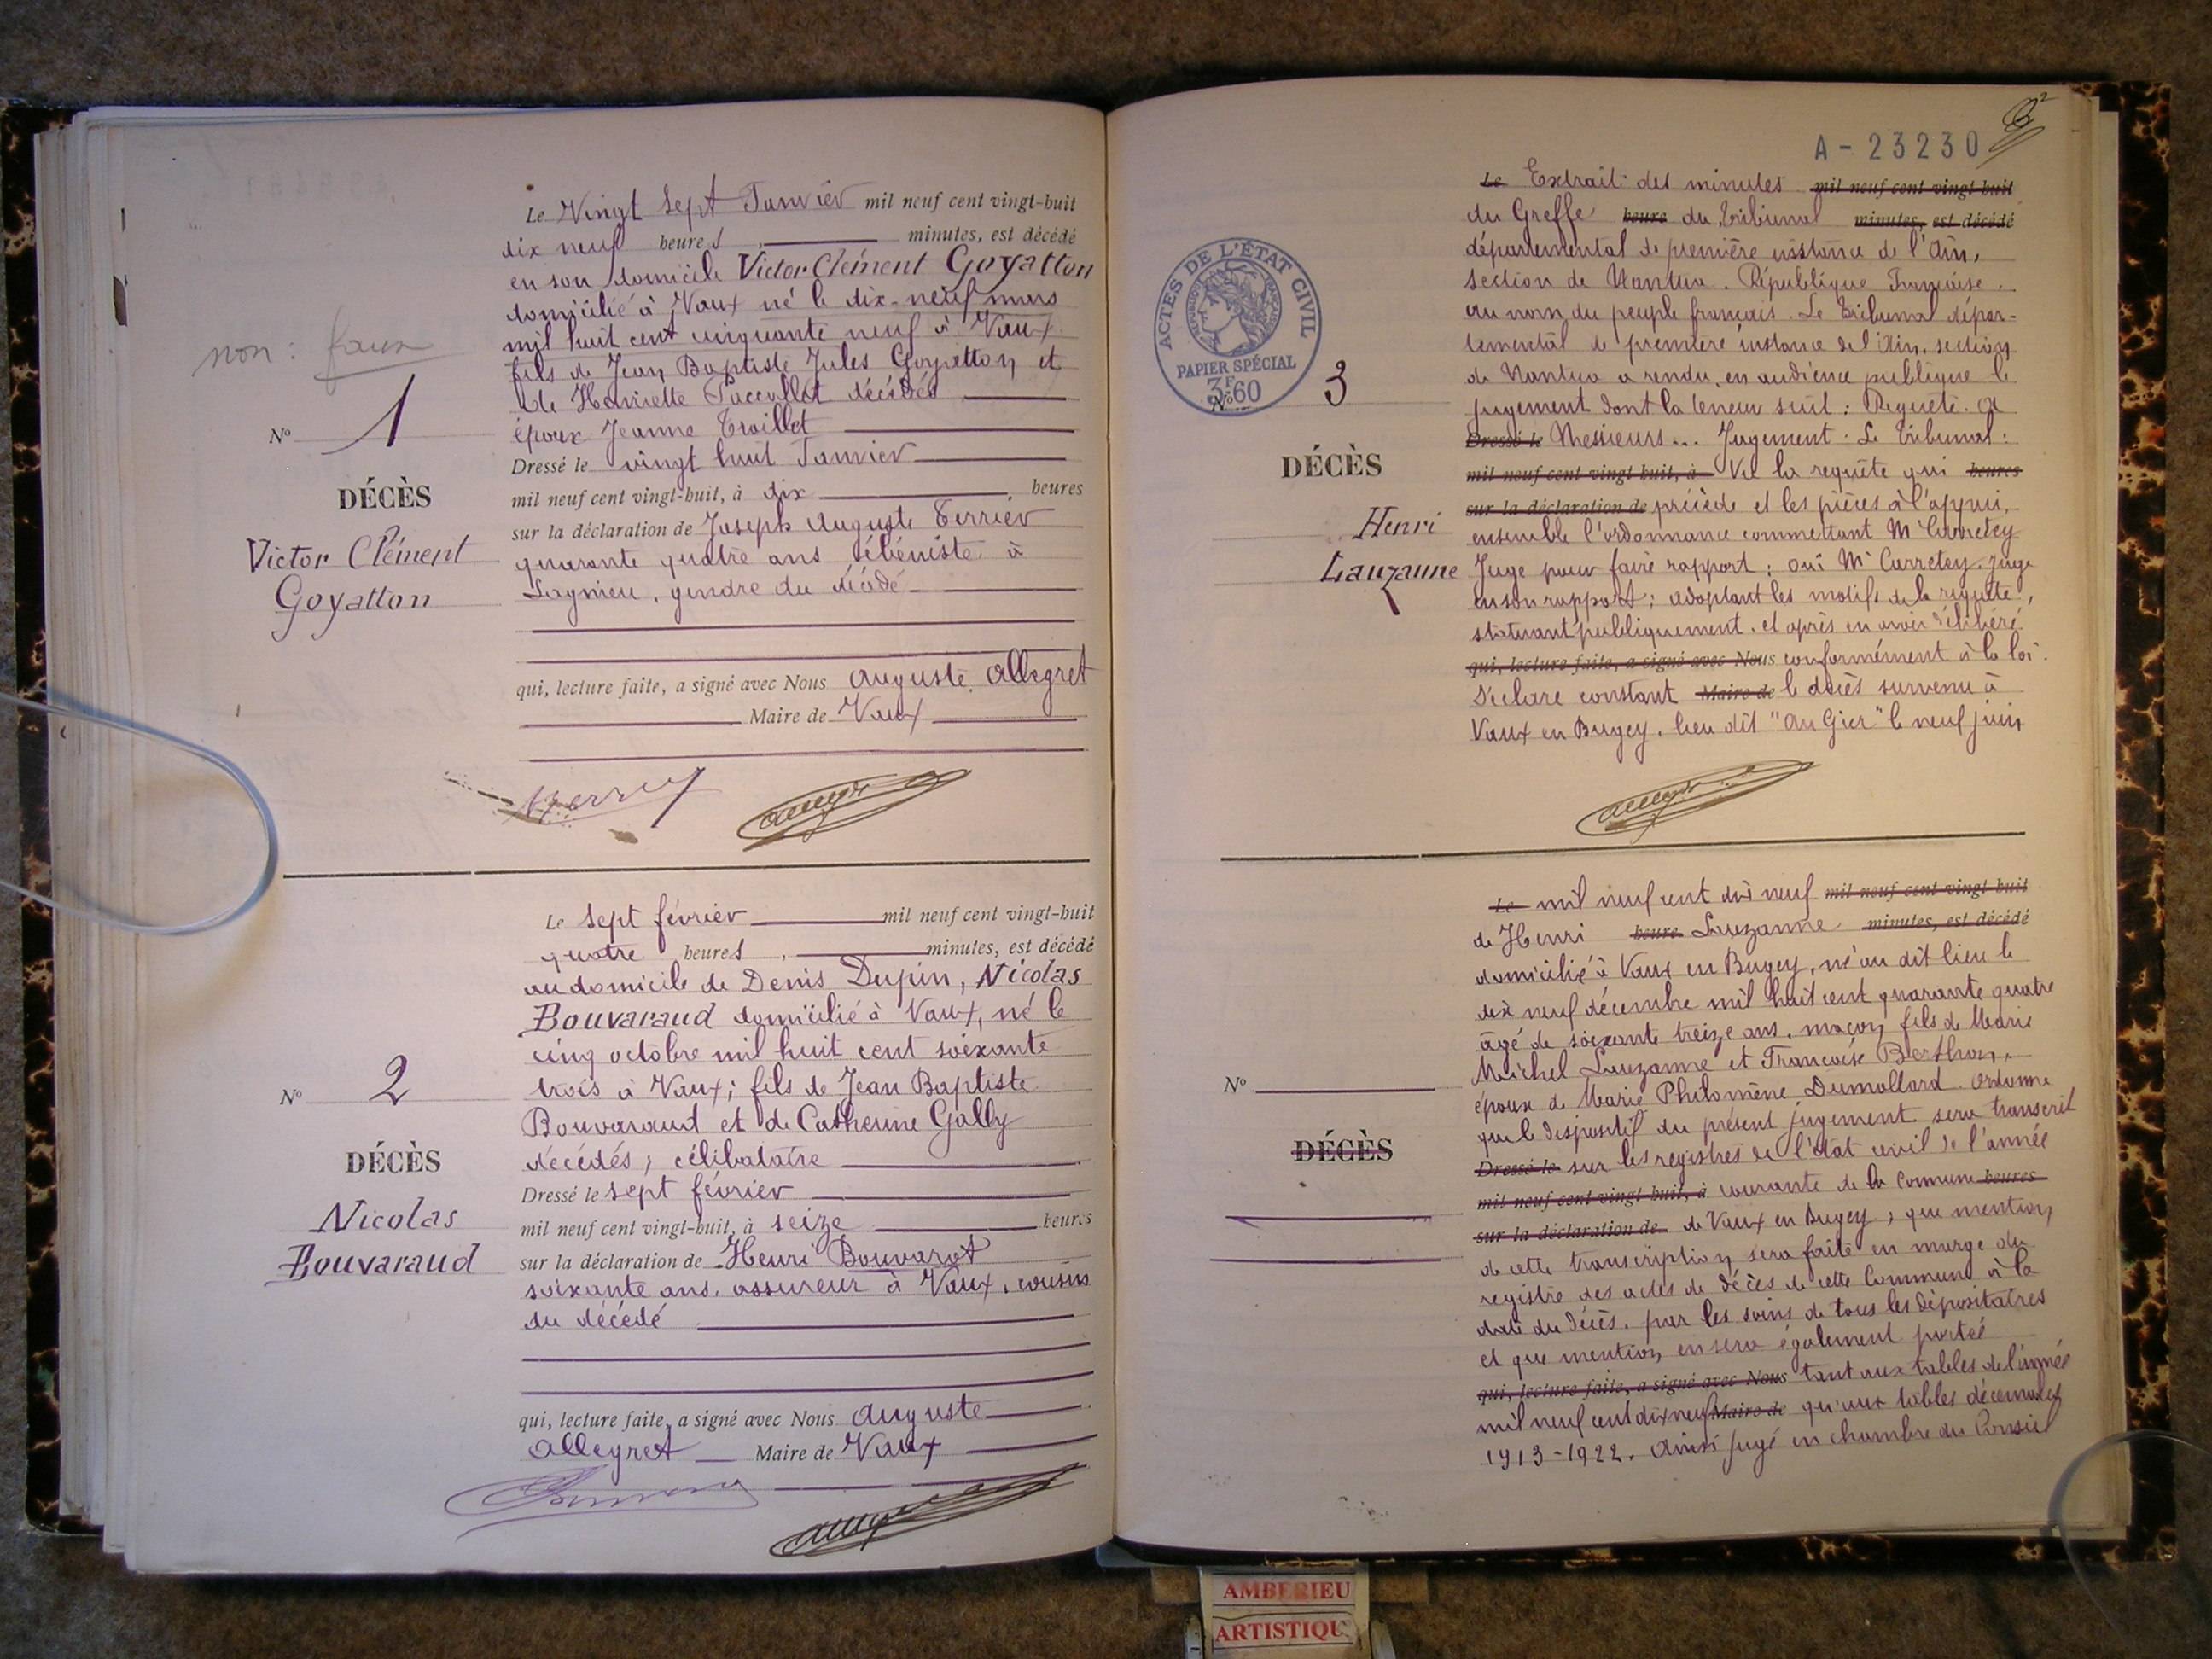 Le Vingt Sept Janvier mil neuf cent vingt-huit
dix neuf heures, minutes, est décédé
en son domicile Victor Clément Goyatton
domicilié à Vaux né le dix-neuf mars
mil huit cent cinquante neuf à Vaux
fils de Jean Baptiste Jules Goyatton et
de Henriette décédés
époux Jeanne Troillet
Dressé le vingt huit Janvier
mil neuf cent vingt-huit, à dix heures
sur la déclaration de Joseph Auguste Terrier
quarante quatre ans ébéniste à
Lagnieu, gendre du décédé
qui, lecture faite, a signé avec Nous Auguste Allegret
Maire de Vaux
non : faux
No 1
DÉCÈS
Victor Clément
Goyatton
Le sept février mil neuf cent vingt-huit
quatre heures, minutes, est décédé
au domicile de Denis Dupin, Nicolas
Bouvaraud domicilié à Vaux, né le
cinq octobre mil huit cent soixante
trois à Vaux; fils de Jean Baptiste
Bouvaraud et de Catherine Gally
décédés; célibataire
Dressé le sept février
mil neuf cent vingt-huit, à seize heures
sur la déclaration de Henri Bouvarot
soixante ans, assureur à Vaux, cousin
du décédé
qui, lecture faite, a signé avec Nous Auguste
Allegret Maire de Vaux
No 2
DÉCÈS
Nicolas
Bouvaraud
A-23230
2
ACTES DE L'ÉTAT CIVIL
PAPIER SPÉCIAL
3F60
No 3
DÉCÈS
Henri
Lauzanne
Le Extrait des minutes mil neuf cent vingt-huit
du Greffe heure du Tribunal minutes, est décédé
départemental de première instance de l'Ain,
section de Nantua. République Française.
au nom du peuple français. Le Tribunal dépar-
temental de première instance de l'Ain, section
de Nantua a rendu, en audience publique le
jugement dont la teneur suit : Requête. a
Dressé le Messieurs... Jugement. Le Tribunal :
mil neuf cent vingt-huit, à Vu la requête qui heures
sur la déclaration de précède et les pièces à l'appui,
ensemble l'ordonnance commettant Mr Curretey
Juge pour faire rapport; ouï Mr Curretey, juge
en son rapport; adoptant les motifs de la requête,
statuant publiquement, et après en avoir délibéré
qui, lecture faite, a signé avec Nous conformément à la loi.
Déclare constant Maire de le décès survenu à
Vaux en Bugey, lieu dit "Au Gier" le neuf juin
Le mil neuf cent dix neuf mil neuf cent vingt-huit
de Henri heure Lauzanne minutes, est décédé
domicilié à Vaux en Bugey, né au dit lieu le
dix neuf décembre mil huit cent quarante quatre
âgé de soixante treize ans, maçon, fils de Marie
Michel Lauzanne et Françoise Berthon,
époux de Marie Philomène Dumollard. Ordonne
que le dispositif du présent jugement sera transcrit
Dressé le sur les registres de l'état civil de l'année
mil neuf cent vingt-huit, à courante de la commune heures
sur la déclaration de de Vaux en Bugey; que mention
de cette transcription sera faite en marge du
registre des actes de décès de cette Commune à la
date du décès, par les soins de tous les dépositaires
et que mention en sera également portée
qui, lecture faite, a signé avec Nous tant aux tables de l'année
mil neuf cent dix neuf Maire de qu'aux tables décennales
1913-1922. Ainsi jugé en chambre du Conseil
No
DÉCÈS
AMBERIEU
ARTISTIQU